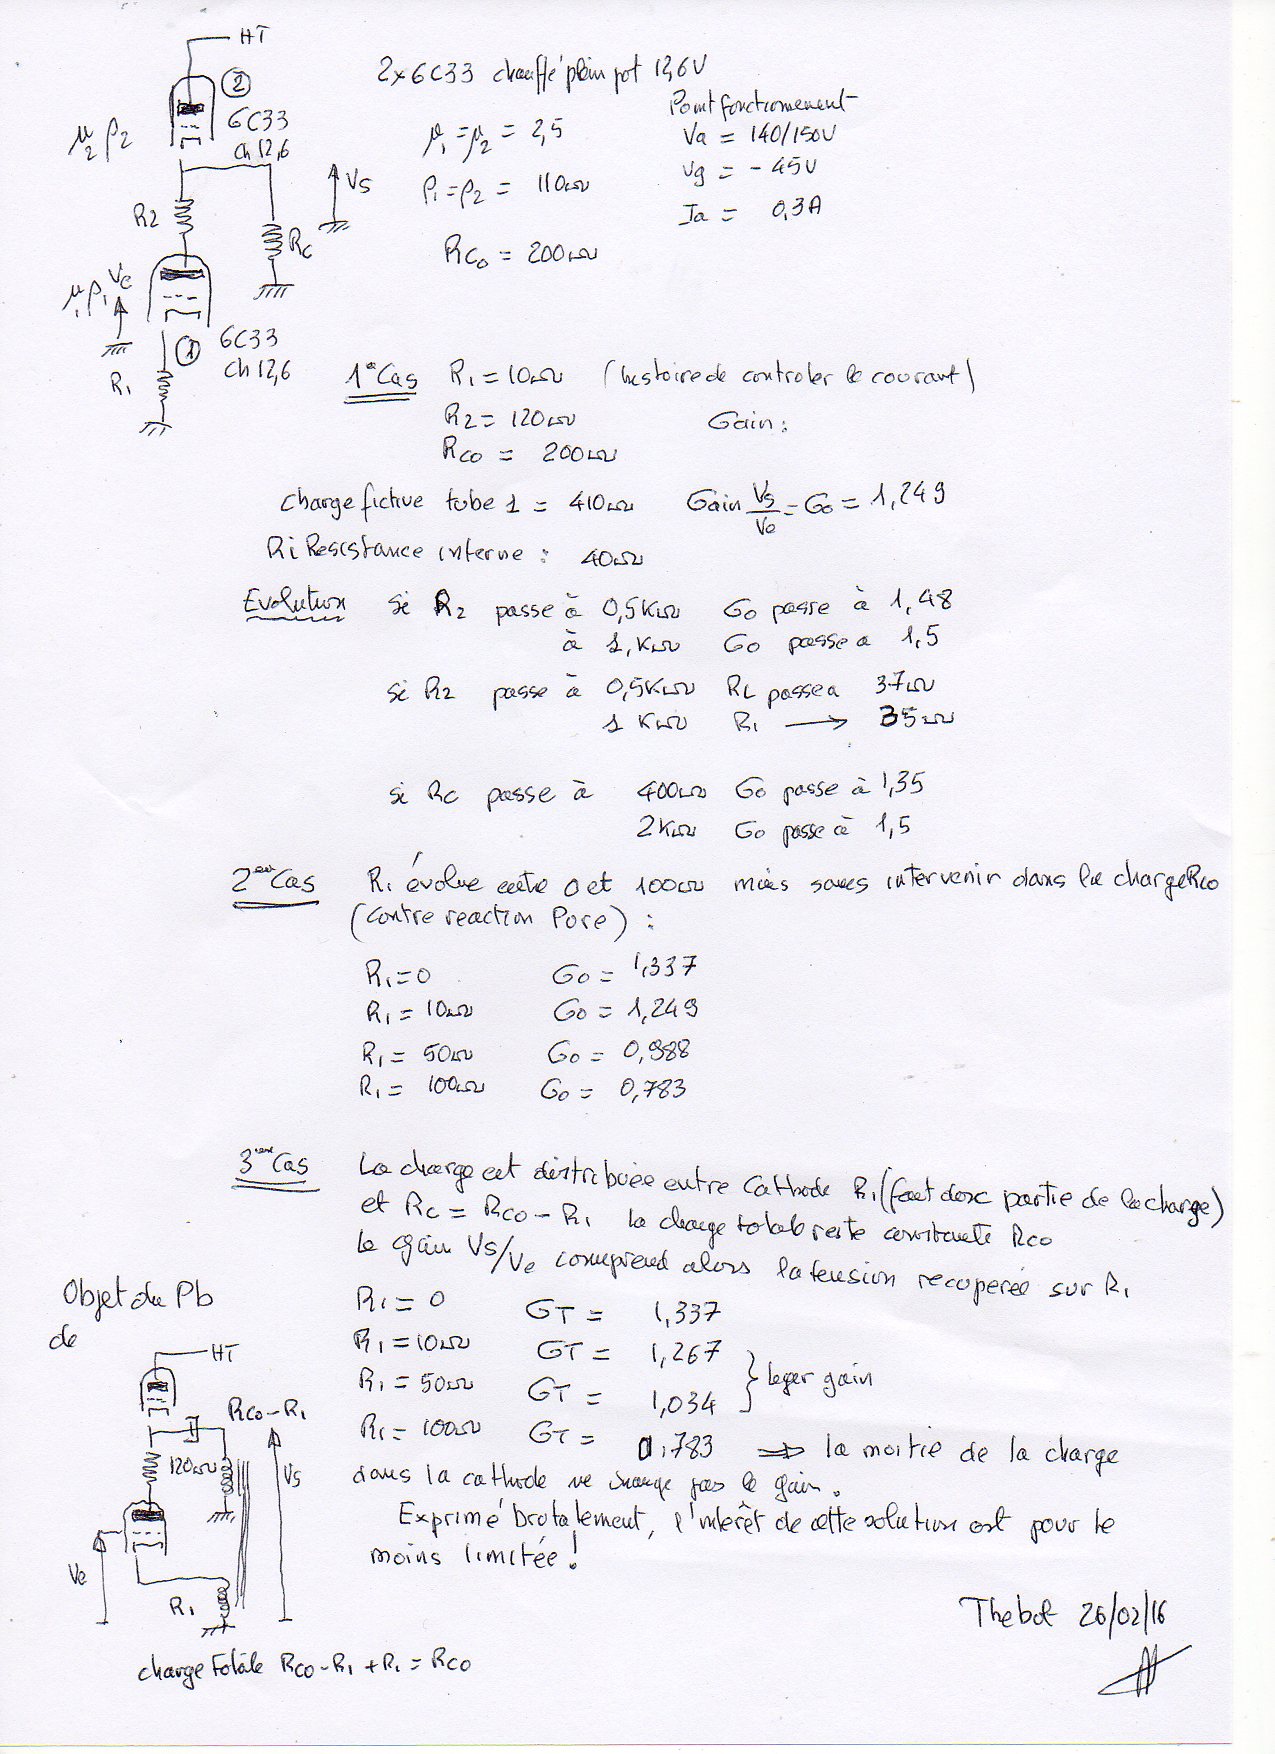 HT
②
6C33
ch 12,6
μ2 ρ2
R2
Rc
Vs
Ve
μ1 ρ1
①
6C33
ch 12,6
R1
2x6C33 chauffé plein pot 12,6V
μ1 = μ2 = 2,5
ρ1 = ρ2 = 110Ω
Rco = 200Ω
Point fonctionnement
Va = 140/150V
Vg = - 45V
Ia = 0,3A
1er Cas R1 = 10Ω (histoire de controler le courant)
R2 = 120Ω Gain :
Rco = 200Ω
Charge fictive tube 1 = 410Ω Gain Vs/Ve = Go = 1,249
Ri Resistance interne : 40Ω
Evolution si R2 passe à 0,5KΩ Go passe à 1,48
à 1,KΩ Go passe a 1,5
si R2 passe à 0,5KΩ Ri passe a 37Ω
1 KΩ Ri → 35Ω
si Rc passe à 400Ω Go passe à 1,35
2KΩ Go passe à 1,5
2eme Cas R1 évolue entre 0 et 100Ω mais sans intervenir dans la charge Rco
(Contre reaction Pure) :
R1 = 0 Go = 1,337
R1 = 10Ω Go = 1,249
R1 = 50Ω Go = 0,988
R1 = 100Ω Go = 0,783
3eme Cas La charge est distribuée entre Cathode R1 (fait donc partie de la charge)
et Rc = Rco - R1 la charge totale reste constante Rco
le gain Vs/Ve comprend alors la tension recuperée sur R1
R1 = 0 GT = 1,337
R1 = 10Ω GT = 1,267
R1 = 50Ω GT = 1,034 } leger gain
R1 = 100Ω GT = 0,783 ⇒ la moitié de la charge
dans la cathode ne change pas le gain.
Exprimé brutalement, l'interêt de cette solution est pour le
moins limitée !
Objet du Pb
de
HT
Rco - R1
120Ω
Vs
Ve
R1
charge totale Rco - R1 + R1 = Rco
Thebot 26/02/16